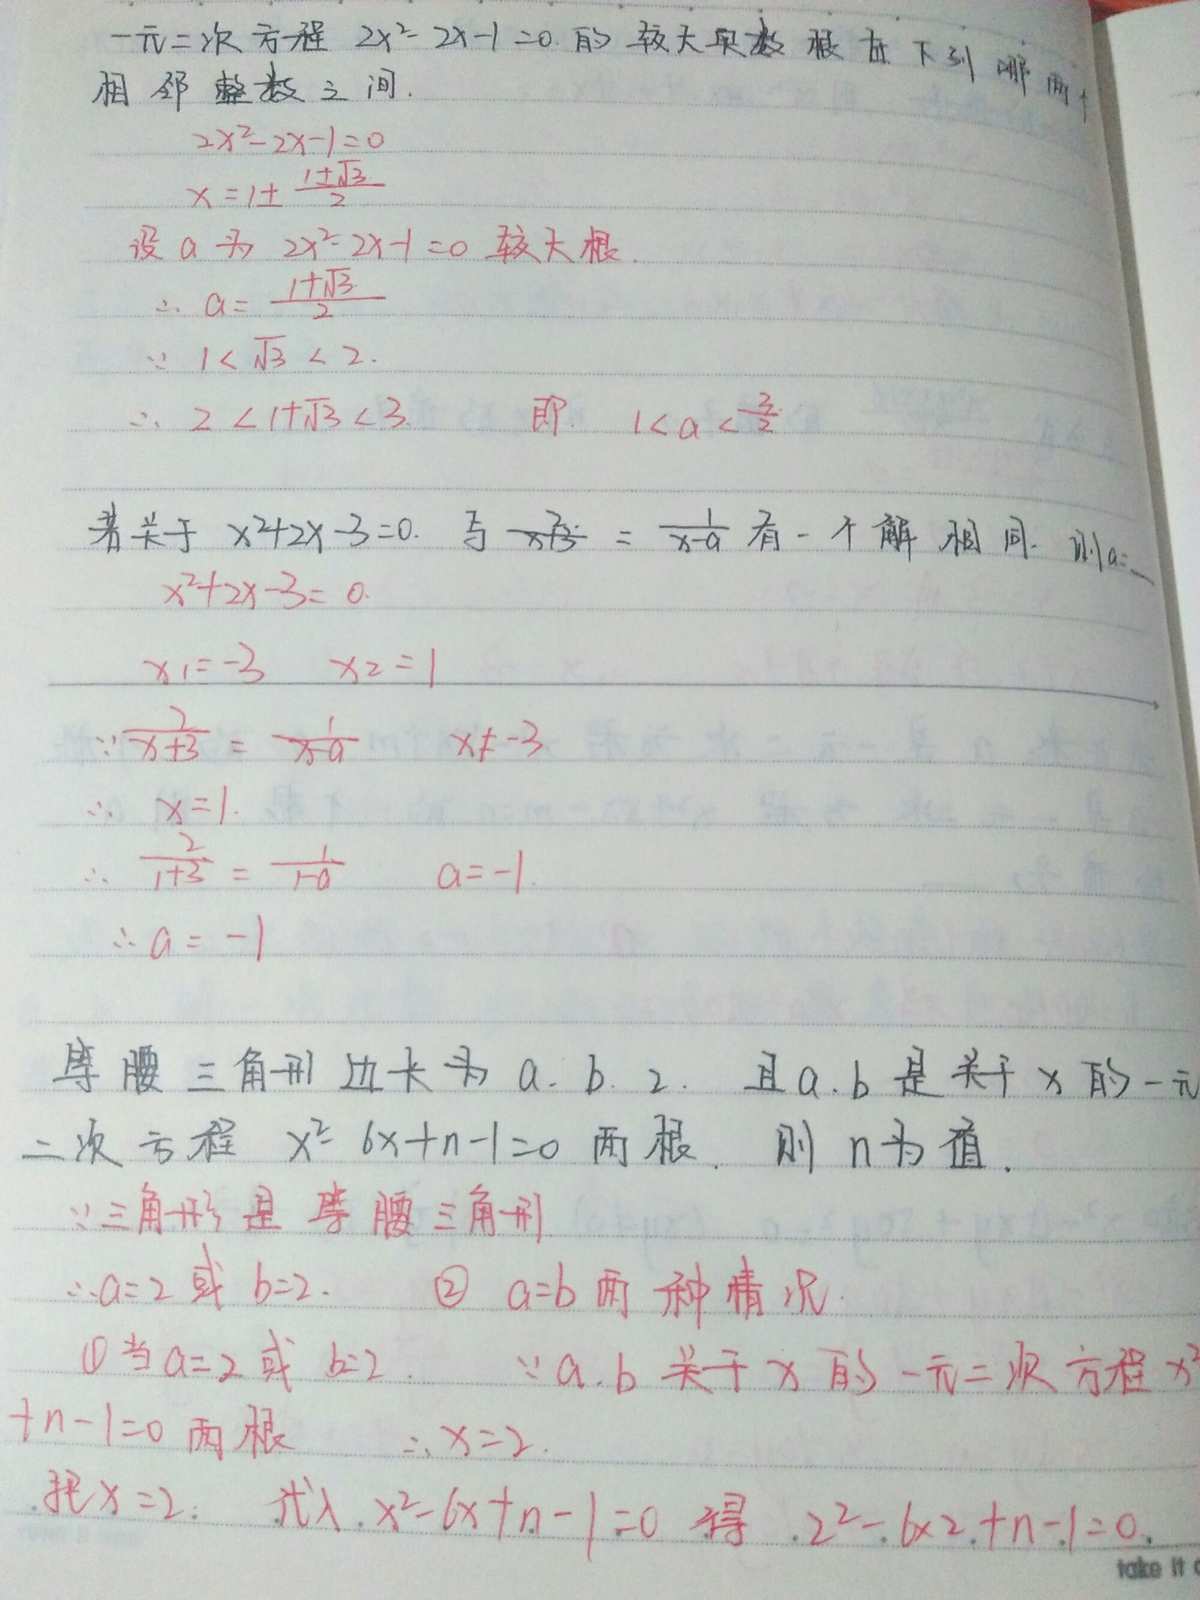 一元二次方程 2x²-2x-1=0 的较大实数根在下列哪两个
相邻整数之间.
2x²-2x-1=0
x=1± (1±√3)/2
设a为 2x²-2x-1=0 较大根.
∴ a= (1+√3)/2
∵ 1<√3<2.
∴ 2<1+√3<3. 即 1<a<3/2
若关于 x²+2x-3=0. 与 2/(x+3) = 1/(x-a) 有一个解相同. 则a=_
x²+2x-3=0.
x₁=-3 x₂=1
∵ 2/(x+3) = 1/(x-a) x≠-3
∴ x=1.
∴ 2/(1+3) = 1/(1-a) a=-1.
∴ a=-1
等腰三角形边长为a.b.2. 且a.b是关于x的一元
二次方程 x²-6x+n-1=0 两根. 则n为值.
∵三角形是等腰三角形
∴a=2或b=2. ② a=b两种情况.
①当a=2或b=2. ∵a.b关于x的一元二次方程x²
+n-1=0两根 ∴x=2.
把x=2. 代入.x²-6x+n-1=0 得 .2²-6×2+n-1=0.
take it